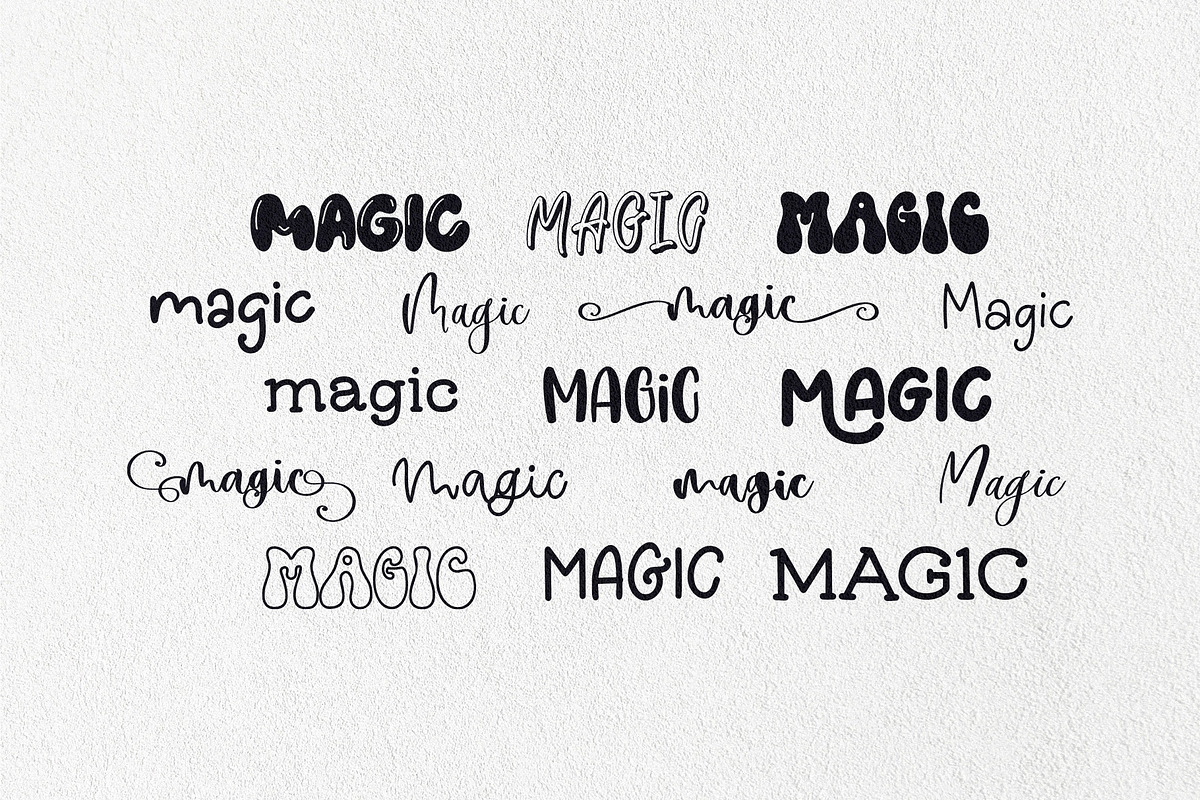 MAGIC MAGIC MAGIC
magic Magic magic Magic
magic MAGiC MAGIC
magic Magic magic Magic
MAGIC MAGIC MAGIC